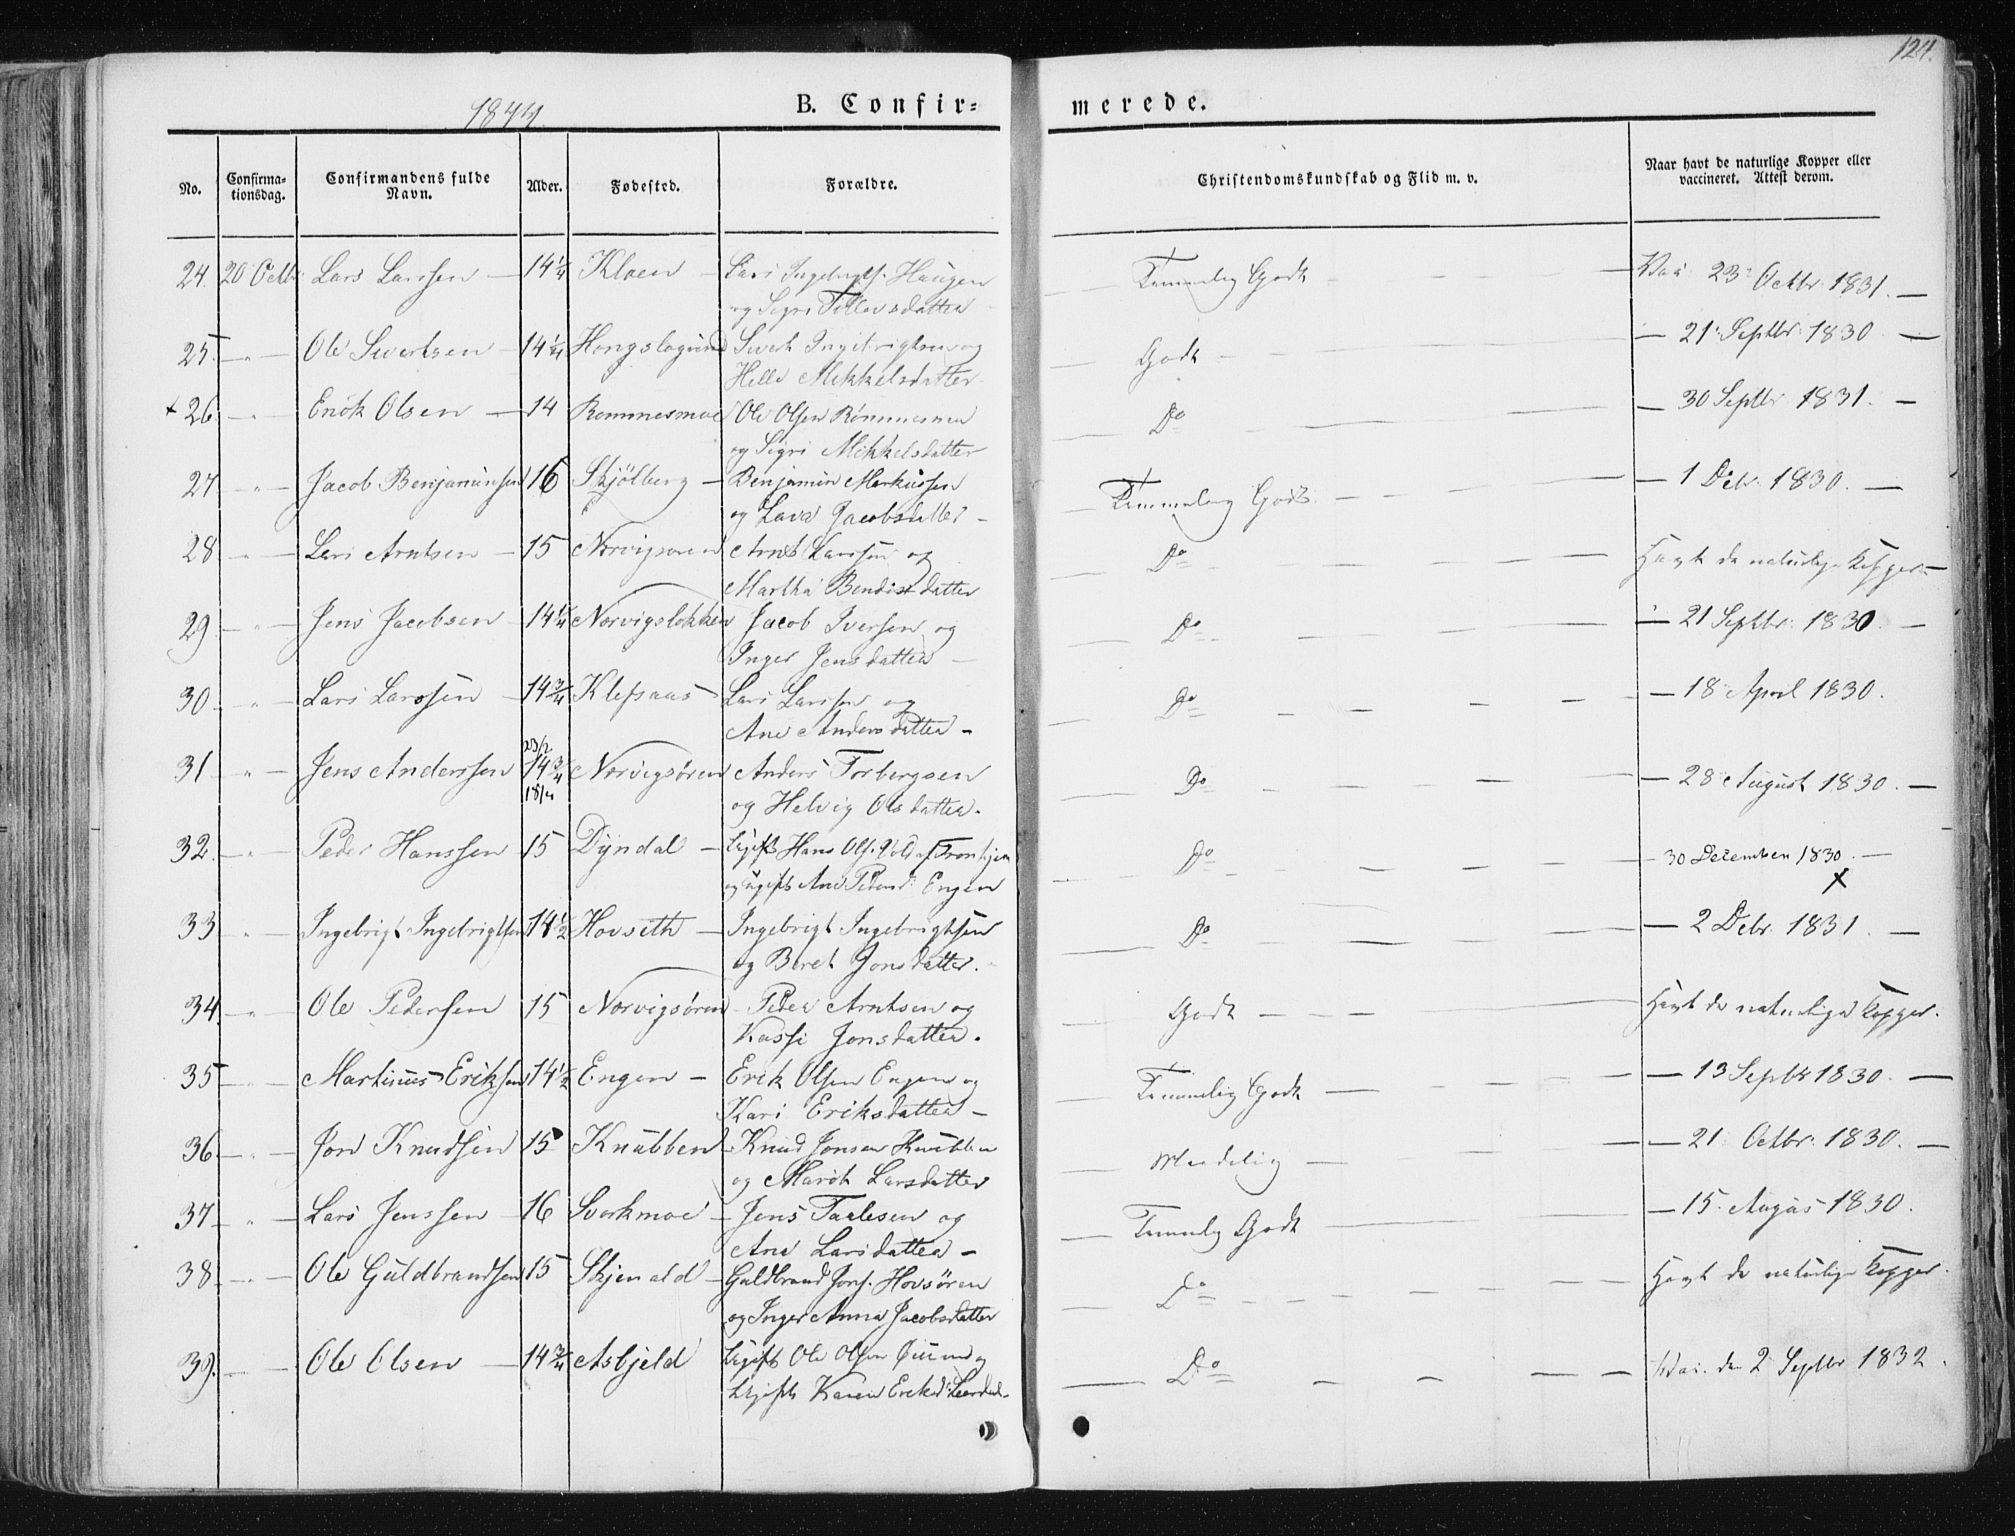 124.
1844.
B. Confir-
merede.
No.
Confirma-
tionsdag.
Confirmandens fulde
Navn.
Alder.
Fødested.
Forældre.
Christendomskundskab og Flid m. v.
Naar havt de naturlige Kopper eller
vaccineret. Attest derom.
24. 20 Octbr Lars Larssen — 14 1/4 Kloen — Lars Ingebrigts. Haugen
og Sigri Tollevsdatter
Temmelig Godt — Vac: 23 Octbr. 1831. —
25. — " — Ole Sivertsen — 14 1/4 Hongslogrund Sivert Ingebrigtsen og
Helle Mikkelsdatter
Godt — — 21 Septbr. 1830 —
+ 26 — " — Enok Olsen — 14 Rømmesmoe Ole Olsen Rømmesmoe
og Sigri Mikkelsdatter
Do — — 30 Septbr 1831. —
27 — " — Jacob Benjaminsen 16 Skjölberg — Benjamin Markussen
og Jacobsdatter —
Temmelig Godt — — 1 Debr. 1830. —
28 — " — Lars Arntsen — 15 Norvigsøren Arnt Larssen og
Martha Bendixdatter
Do — Havt de naturlige Kopper —
29 — " — Jens Jacobsen — 14 1/4 Norvigsløkken Jacob Iversen og
Inger Jensdatter —
Do — — 21 Septbr. 1830. —
30 — " — Lars Larssen — 14 3/4 Klefsaas — Lars Larssen og
Ane Andersdatter —
Do — — 18 April 1830.
31 — " — Jens Anderssen 14 3/4 Norvigsøren Anders Torbergsen
og Helvig Olsdatter.
Do — — 28 August 1830. —
32. — " — Peder Hanssen 15 Dyndal — Ugift Hans Ols. Vold af Tronhjem
og ugift Ane Pedersd. Engen
Do — — 30 December 1830. —
x
33 — " — Ingebrigt Ingebrigtsen 14 1/2 Hovseth — Ingebrigt Ingebrigtsen
og Beret Jonsdatter.
Do — — 2 Debr. 1831. —
34 — " — Ole Pedersen 15 Norvigsøren — Peder Arntsen og
Kassi Jonsdatter.
Godt — Havt de naturlige Kopper.
35 — " — Martinus Eriksen 14 1/2 Engen — Erik Olsen Engen og
Kari Eriksdatter —
Temmelig Godt — — 13 Septbr 1830. —
36 — " — Jon Knudsen 15 Knubben Knud Jonsen Knubben
og Marit Larsdatter
Maadelig — — 21 Octbr. 1830. —
37 — " — Lars Jenssen — 16 Svorkmoe — Jens Taalesen og
Ane Larsdatter —
Temmelig Godt — — 15 1830.
38 — " — Ole Guldbrandsen 15 Skjenald — Guldbrand Jons. Hovsøren
og Inger Anna Jacobsdatter
Do — Havt de naturlige Kopper.
39. — — Ole Olsen — 14 3/4 Asbjeld Ugift Ole Olsen og
Ugift Karen Eriksd.
Do — Vac. den 2 Septbr 1832.